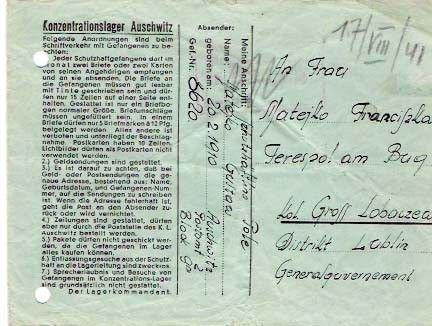 Konzentrationslager Auschwitz
Folgende Anordnungen sind beim
Schriftverkehr mit Gefangenen zu be-
achten:
1.) Jeder Schutzhaftgefangene darf im
Monat zwei Briefe oder zwei Karten
von seinen Angehörigen empfangen
und an sie absenden. Die Briefe an
die Gefangenen müssen gut lesbar
mit Tinte geschrieben sein und dür-
fen nur 15 Zeilen auf einer Seite ent-
halten. Gestattet ist nur ein Briefbo-
gen normaler Größe. Briefumschläge
müssen ungefüttert sein. In einem
Briefe dürfen nur 5 Briefmarken à 12 Pfg.
beigelegt werden. Alles andere ist
verboten und unterliegt der Beschlag-
nahme. Postkarten haben 10 Zeilen.
Lichtbilder dürfen als Postkarten nicht
verwendet werden.
2.) Geldsendungen sind gestattet.
3.) Es ist darauf zu achten, daß bei
Geld- oder Postsendungen die ge-
naue Adresse, bestehend aus: Name,
Geburtsdatum, und Gefangenen-Num-
mer, auf die Sendungen zu schreiben
ist. Wenn die Adresse fehlerhaft ist,
geht die Post an den Absender zu-
rück oder wird vernichtet.
4.) Zeitungen sind gestattet, dürfen
aber nur durch die Poststelle des K. L.
Auschwitz bestellt werden.
5.) Pakete dürfen nicht geschickt wer-
den, da die Gefangenen im Lager
alles kaufen können.
6.) Entlassungsgesuche aus der Schutz-
haft an die Lagerleitung sind zwecklos.
7.) Sprecherlaubnis und Besuche von
Gefangenen im Konzentrations-Lager
sind grundsätzlich nicht gestattet.
Der Lagerkommandant.
Absender:
Meine Anschrift:
Name:
geboren am: 20.2.1910
Gef.-Nr. 8620
Auschwitz
Postamt 2
17/VIII/41
An Frau
Matejko Franciszka
Terespol am Bug
Distrikt Lublin
Generalgouvernement